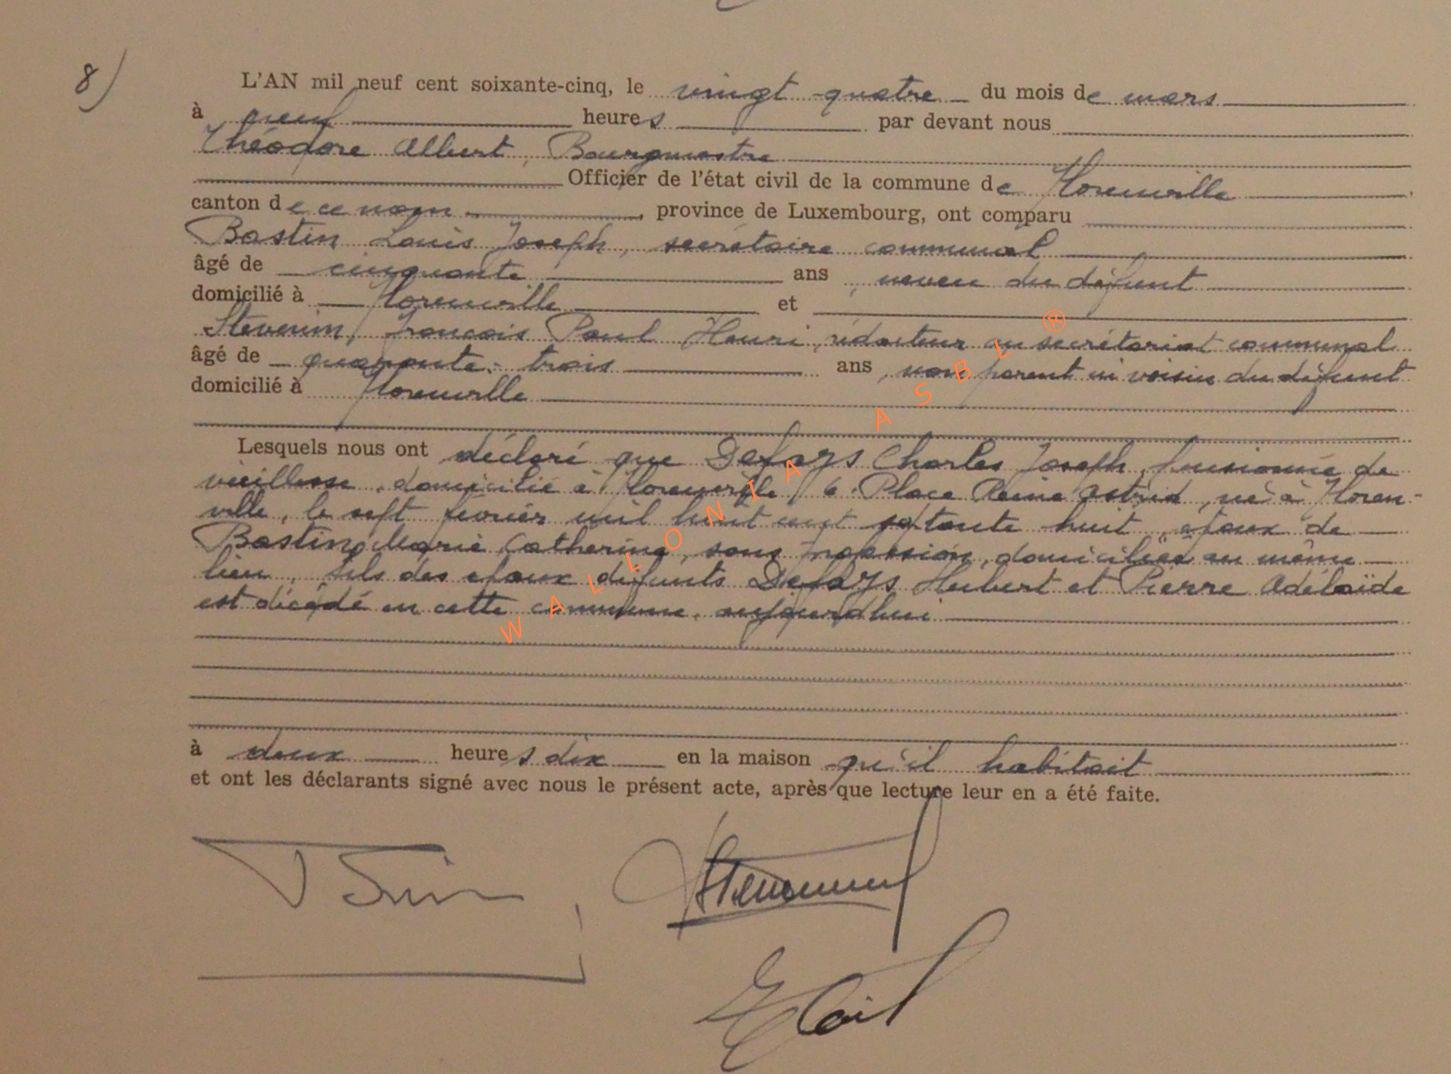 8)
L'AN mil neuf cent soixante-cinq, le vingt quatre du mois de mars
à neuf heures par devant nous
Théodore Albert, Bourgmestre
Officier de l'état civil de la commune de Florenville
canton de ce nom, province de Luxembourg, ont comparu
Bastin Louis Joseph, secrétaire communal
âgé de cinquante ans, neveu du défunt
domicilié à Florenville et
Stevenin, François Paul Henri, rédacteur au secrétariat communal
âgé de quarante-trois ans, non parent ni voisin du défunt
domicilié à Florenville
Lesquels nous ont déclaré que Defays Charles Joseph, pensionné de
vieillesse, domicilié à Florenville, 6 Place Reine Astrid, né à Floren-
ville, le sept février mil huit cent septante huit, époux de
Bastin, Marie Catherine, sans profession, domiciliée au même
lieu, fils des époux défunts Defays Hubert et Pierre Adélaïde
est décédé en cette commune, aujourd'hui
à deux heures dix en la maison qu'il habitait
et ont les déclarants signé avec nous le présent acte, après que lecture leur en a été faite.
WALLONIA ASBL ®